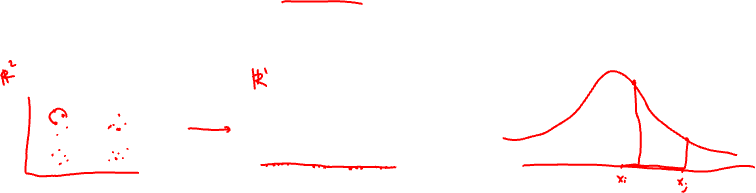 ℝ²
ℝ¹
xᵢ
xⱼ